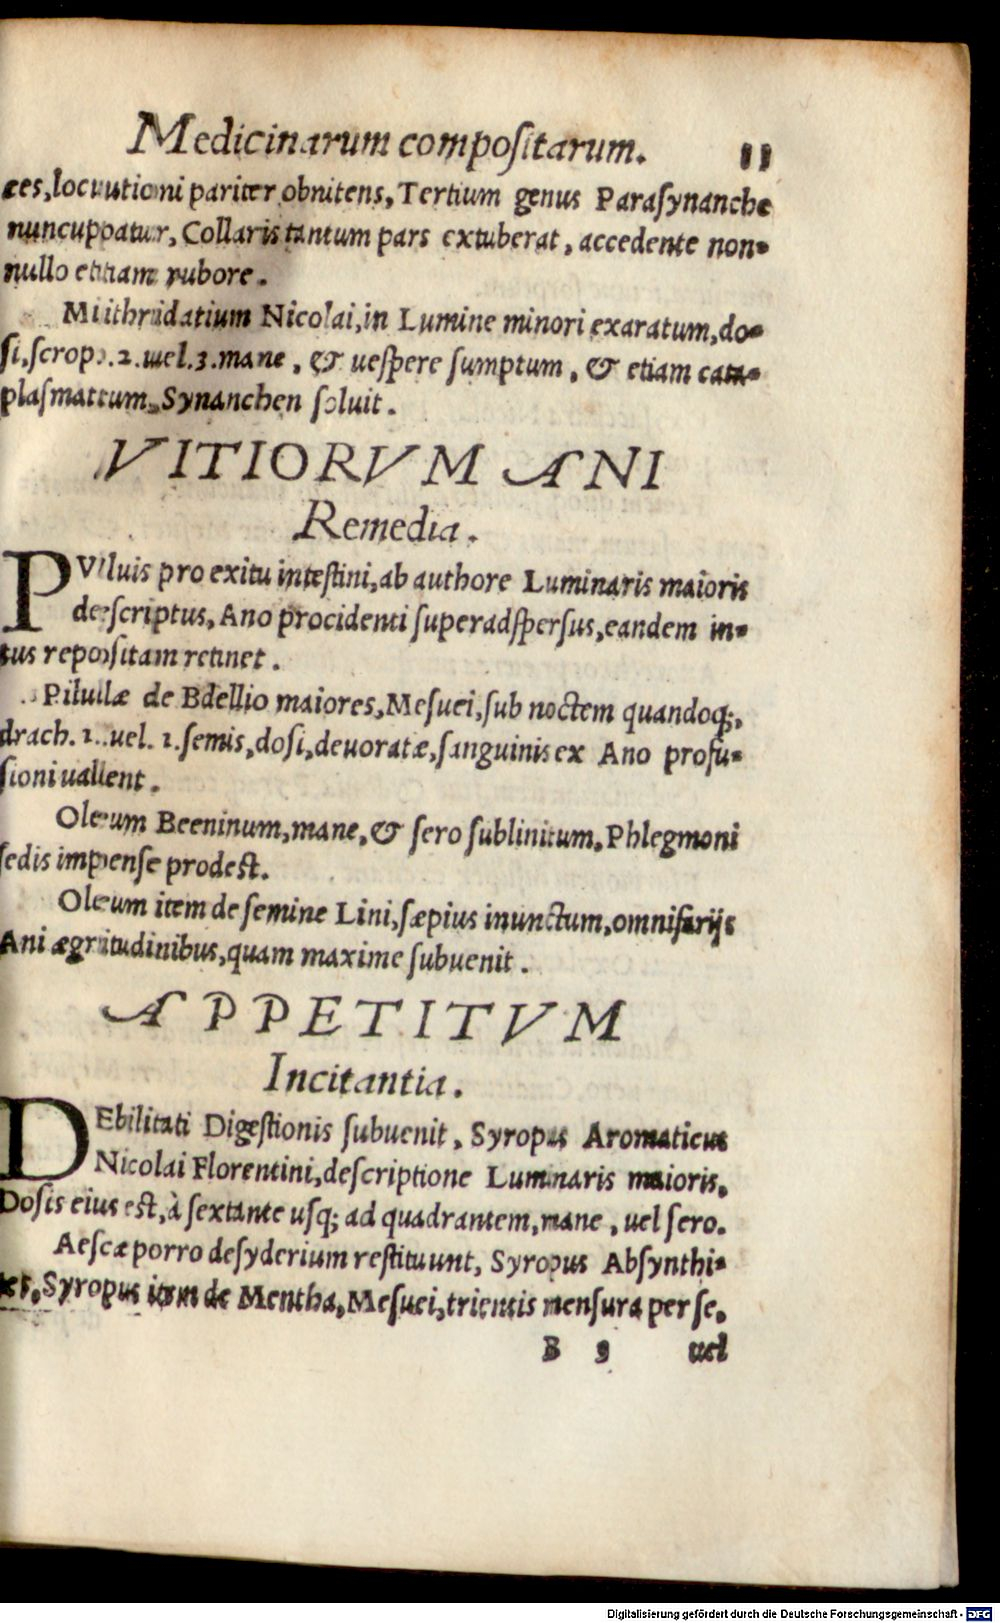 Medicinarum compoſitarum. 11
æes, locuutioni pariter obnitens, Tertium genus Paraſynanche
nuncuppatur, Collaris tantum pars extuberat, accedente non-
nullo etiam rubore.
Mithridatium Nicolai, in Lumine minori exaratum, do-
ſi, ſcrop. 2. uel. 3. mane, & ueſpere ſumptum, & etiam cata-
plaſmattum, Synanchen ſoluit.
VITIORVM ANI
Remedia.
PVluis pro exitu inteſtini, ab authore Luminaris maioris
deſcriptus, Ano procidenti ſuperadſperſus, eandem in-
tus repoſitam retinet.
Pilulæ de Bdellio maiores, Meſuei, ſub noctem quandoq;,
drach. 1. uel. 1. ſemis, doſi, deuoratæ, ſanguinis ex Ano profu-
ſioni ualent.
Oleum Beeninum, mane, & ſero ſublinitum, Phlegmoni
ſedis impenſe prodeſt.
Oleum item de ſemine Lini, ſæpius inunctum, omnifarijs
Ani ægritudinibus, quam maxime ſubuenit.
APPETITVM
Incitantia.
DEbilitati Digeſtionis ſubuenit, Syropus Aromaticus
Nicolai Florentini, deſcriptione Luminaris maioris,
Doſis eius eſt, à ſextante uſq; ad quadrantem, mane, uel ſero.
Aeſcæ porro deſyderium reſtituunt, Syropus Abſynthi-
tes, Syropus item de Mentha, Meſuei, trientis menſura per ſe,
B 3 uel
Digitalisierung gefördert durch die Deutsche Forschungsgemeinschaft - DFG